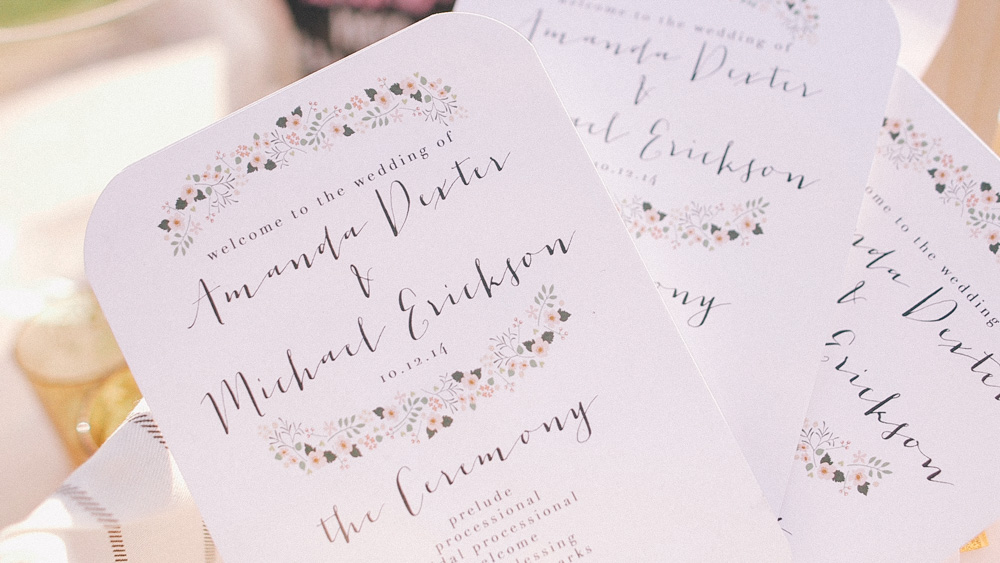 welcome to the wedding of
Amanda Dexter
&
Michael Erickson
10.12.14
the Ceremony
prelude
processional
processional
welcome to the wedding of
Amanda Dexter
&
Erickson
10.12.14
to the wedding
&
Dexter
Erickson